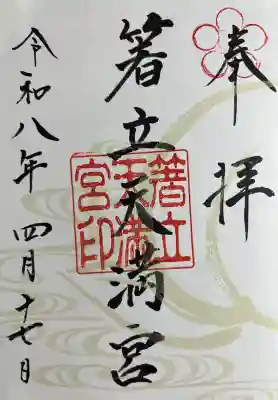 奉拝
箸立天満宮
箸立天満宮印
令和八年四月十七日